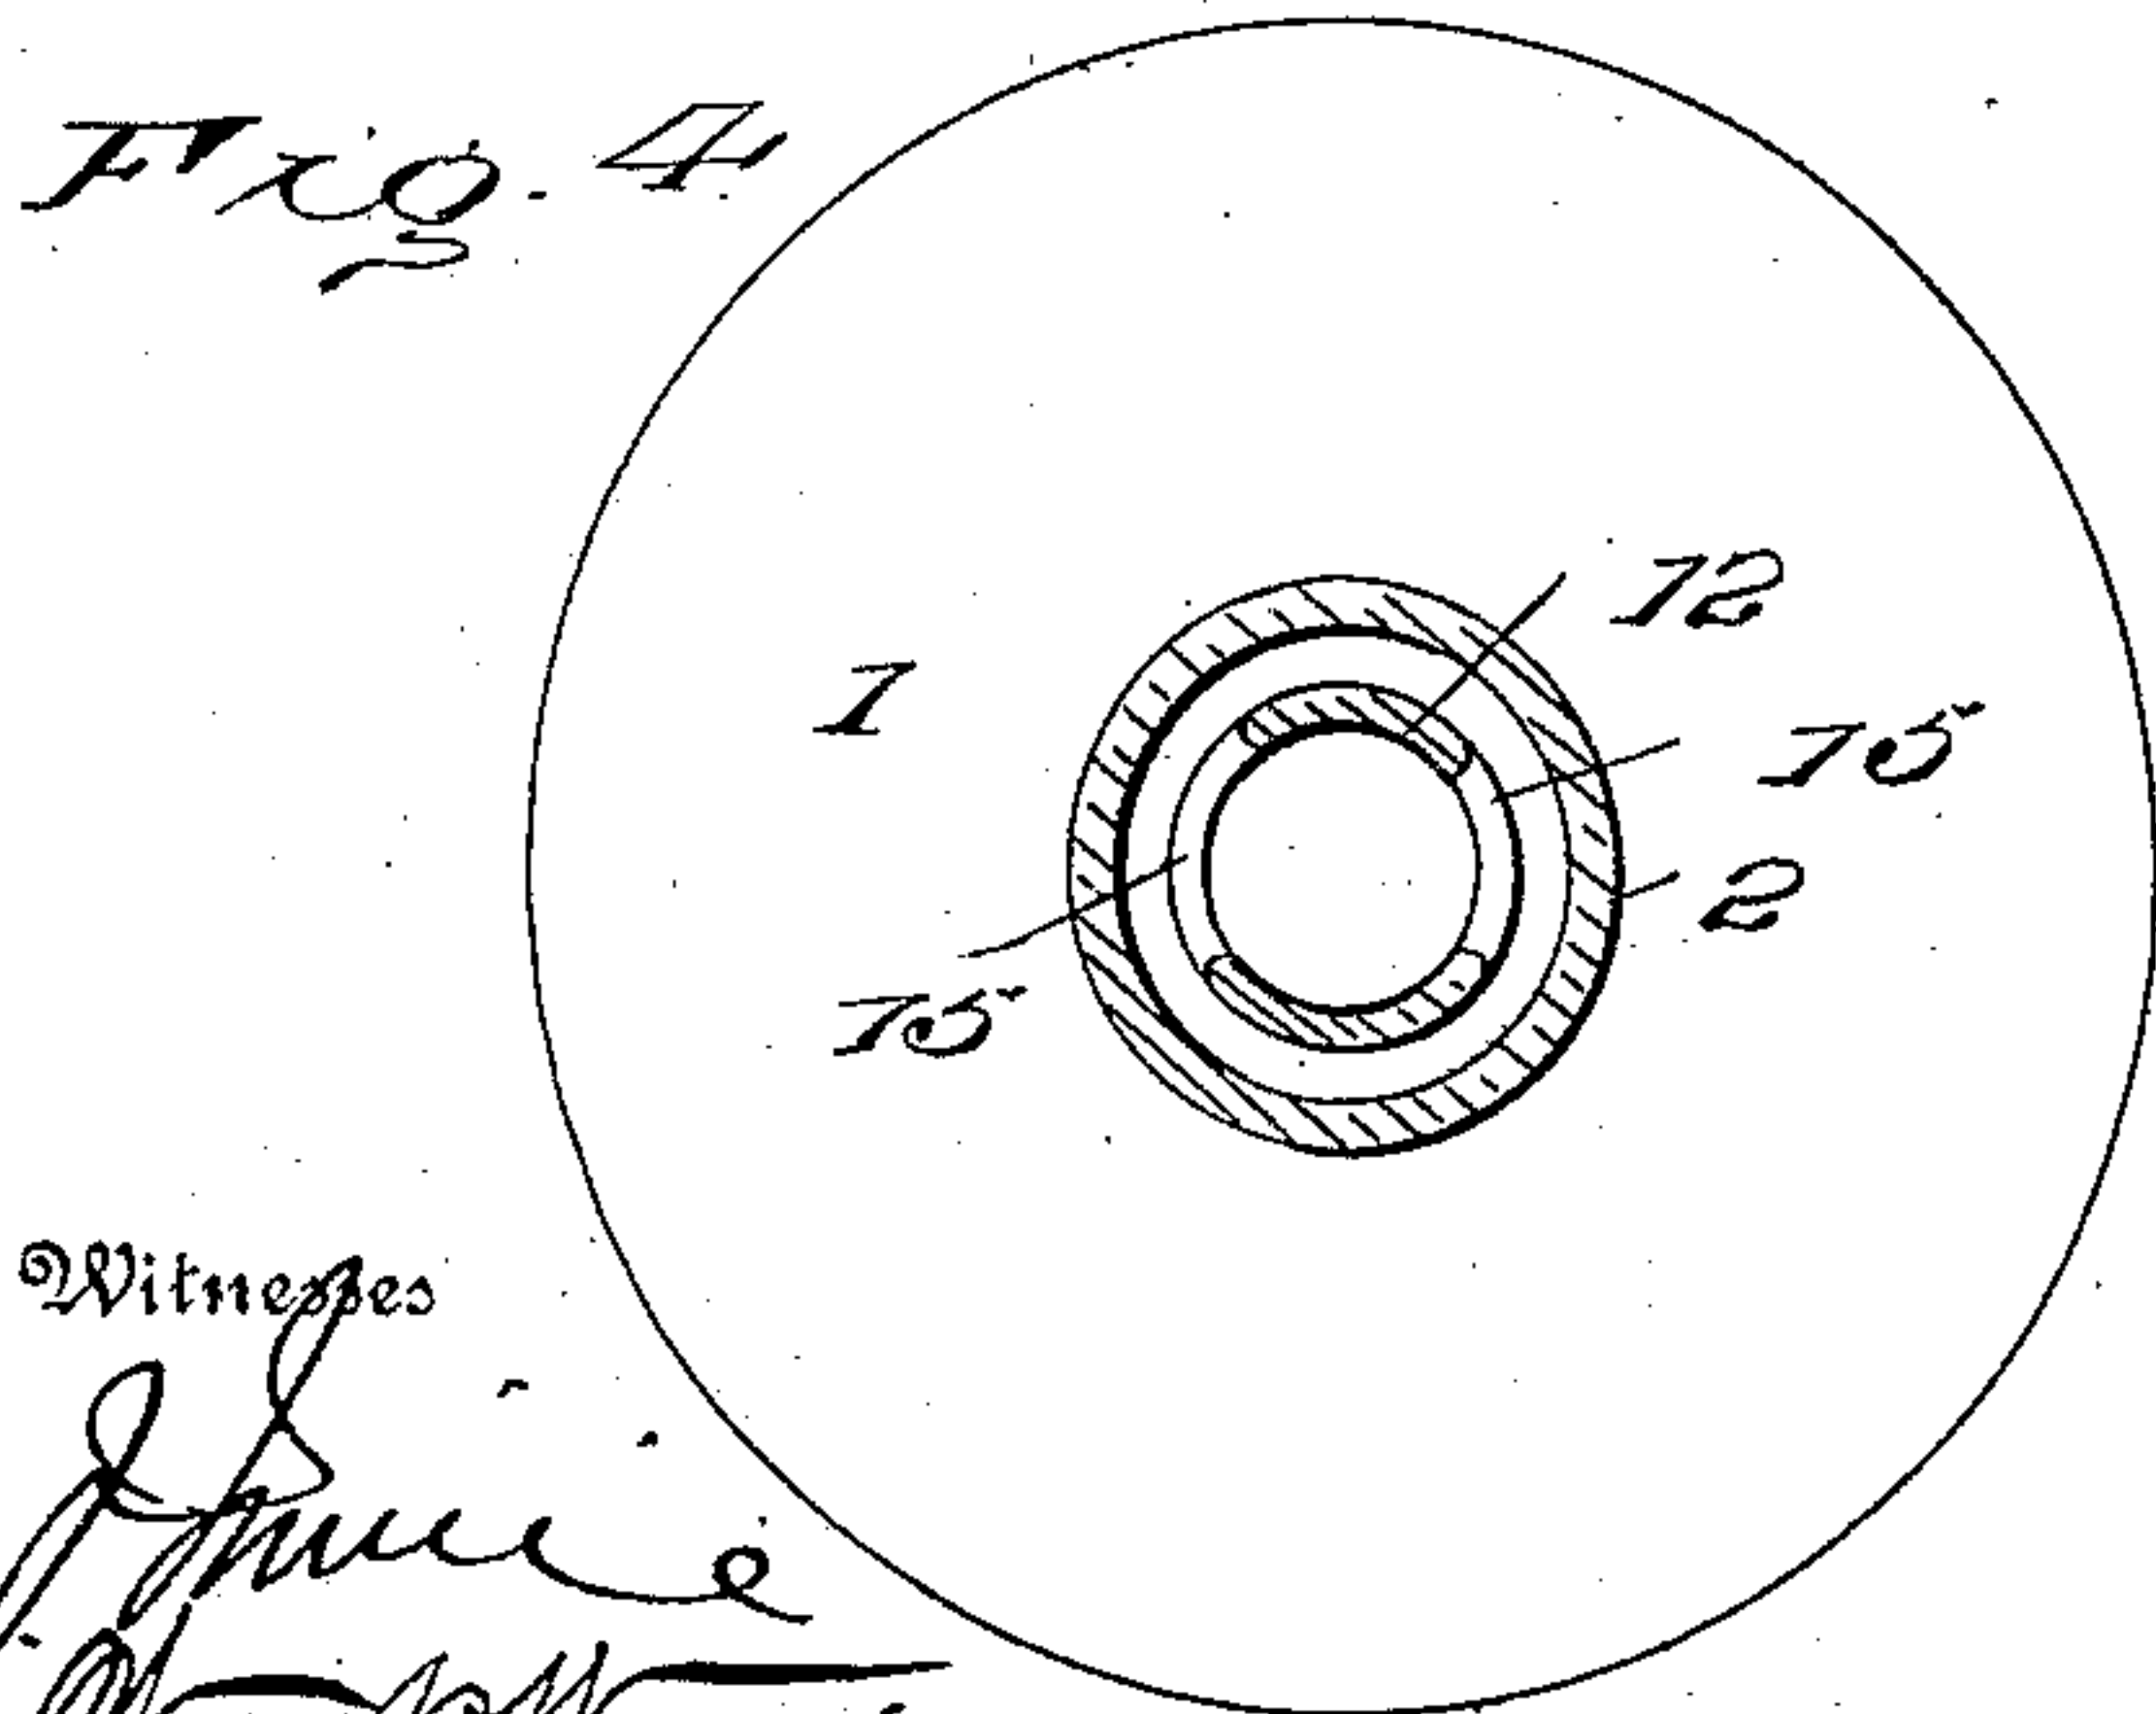 Fig. 4
12
1
15
2
15
Witnesses